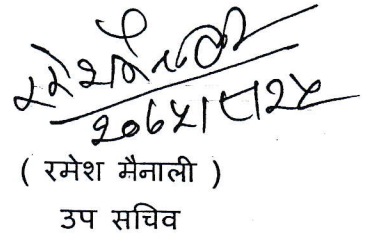 रमेश मैनाली
२०७५।८।२५
( रमेश मैनाली )
उप सचिव